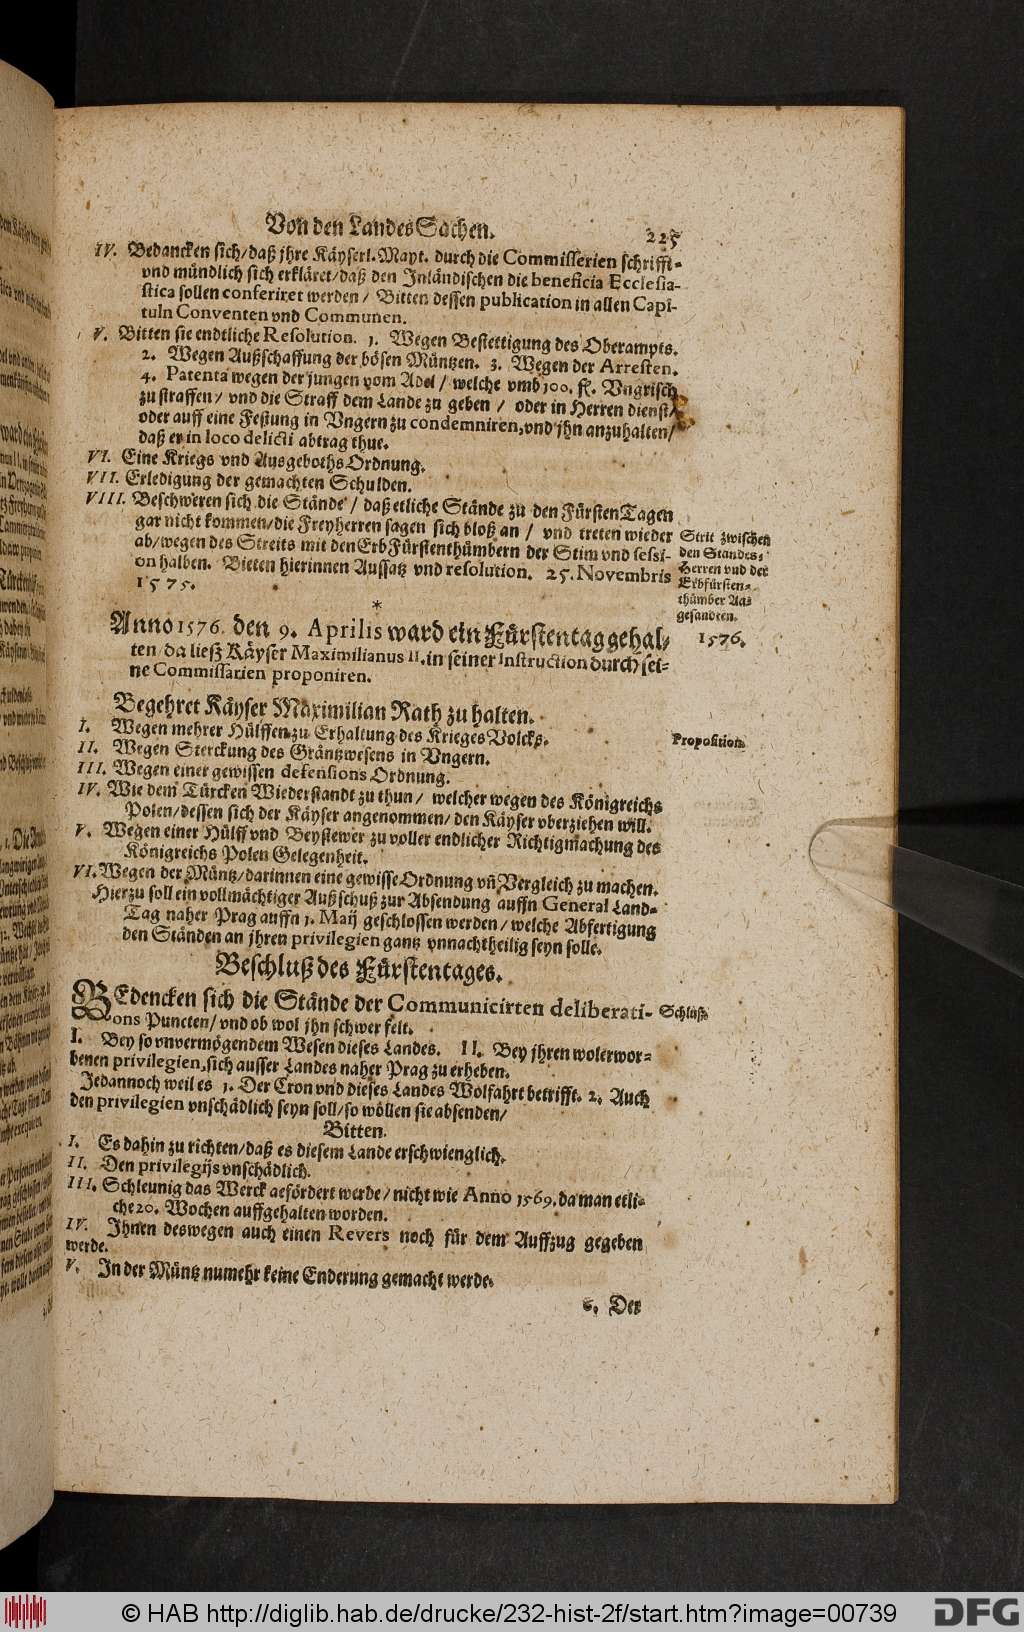 Von den LandesSachen. 225
IV. Bedancken sich/daß jhre Käyserl. Mayt. durch die Commisserien schrifft-
vnd mündlich sich erkläret/daß den Inländischen die beneficia Ecclesia-
stica sollen conferiret werden / Bitten dessen publication in allen Capi-
tuln Conventen vnd Communen.
V. Bitten sie endtliche Resolution. 1. Wegen Bestettigung des Oberampts.
2. Wegen Außschaffung der bösen Müntzen. 3. Wegen der Arresten.
4. Patenta wegen der jungen vom Adel / welche vmb 100. fl. Vngrisch
zu straffen/ vnd die Straff dem Lande zu geben / oder in Herren dienst/
oder auff eine Festung in Vngern zu condemniren, vnd jhn anzuhalten/
daß er in loco delicti abtrag thue.
VI. Eine Kriegs vnd Ausgeboths Ordnung.
VII. Erledigung der gemachten Schulden.
VIII. Beschweren sich die Stände / daß etliche Stände zu den FürstenTagen
gar nicht kommen/die Freyherren sagen sich bloß an / vnd treten wieder
ab/wegen des Streits mit den ErbFürstenthümbern der Stim vnd sessi-
on halben. Bieten hierinnen Aussatz vnd resolution. 25. Novembris
1575.
Strit zwischen
den Standes-
Herren vnd der
Erbfürsten-
thümber Aa-
gesandten.
*
Anno 1576. den 9. Aprilis ward ein Fürstentag gehal-
ten/da ließ Käyser Maximilianus II. in seiner Instruction durch sei-
ne Commissarien proponiren.
1576.
Begehret Käyser Maximilian Rath zu halten.
I. Wegen mehrer Hülffen zu Erhaltung des Krieges Volcks.
Proposition.
II. Wegen Sterckung des Gräntzwesens in Vngern.
III. Wegen einer gewissen defensions Ordnung.
IV. Wie dem Türcken Wiederstandt zu thun / welcher wegen des Königreichs
Polen/dessen sich der Käyser angenommen/den Käyser vberziehen will.
V. Wegen einer Hülff vnd Beystewer zu voller endlicher Richtigmachung des
Königreichs Polen Gelegenheit.
VI. Wegen der Müntz/darinnen eine gewisse Ordnung vñ Vergleich zu machen.
Hierzu soll ein vollmächtiger Außschuß zur Absendung auffn General Land-
Tag naher Prag auffn 1. Maij geschlossen werden/ welche Abfertigung
den Ständen an jhren privilegien gantz vnnachtheilig seyn solle.
Beschluß des Fürstentages.
BEdencken sich die Stände der Communicirten deliberati-
ons Puncten/vnd ob wol jhn schwer felt.
Schluß.
I. Bey so vnvermögendem Wesen dieses Landes. II. Bey jhren wolerwor-
benen privilegien, sich ausser Landes naher Prag zu erheben.
Jedannoch weil es 1. Der Cron vnd dieses Landes Wolfahrt betrifft. 2. Auch
den privilegien vnschädlich seyn soll/so wöllen sie absenden/
Bitten.
I. Es dahin zu richten/daß es diesem Lande erschwienglich.
II. Den privilegijs vnschädlich.
III. Schleunig das Werck gefördert werde/ nicht wie Anno 1569. da man etli-
che 20. Wochen auffgehalten worden.
IV. Jhnen deswegen auch einen Revers noch für dem Auffzug gegeben
werde.
V. In der Müntz numehr keine Enderung gemacht werde.
6. Der
© HAB http://diglib.hab.de/drucke/232-hist-2f/start.htm?image=00739
DFG